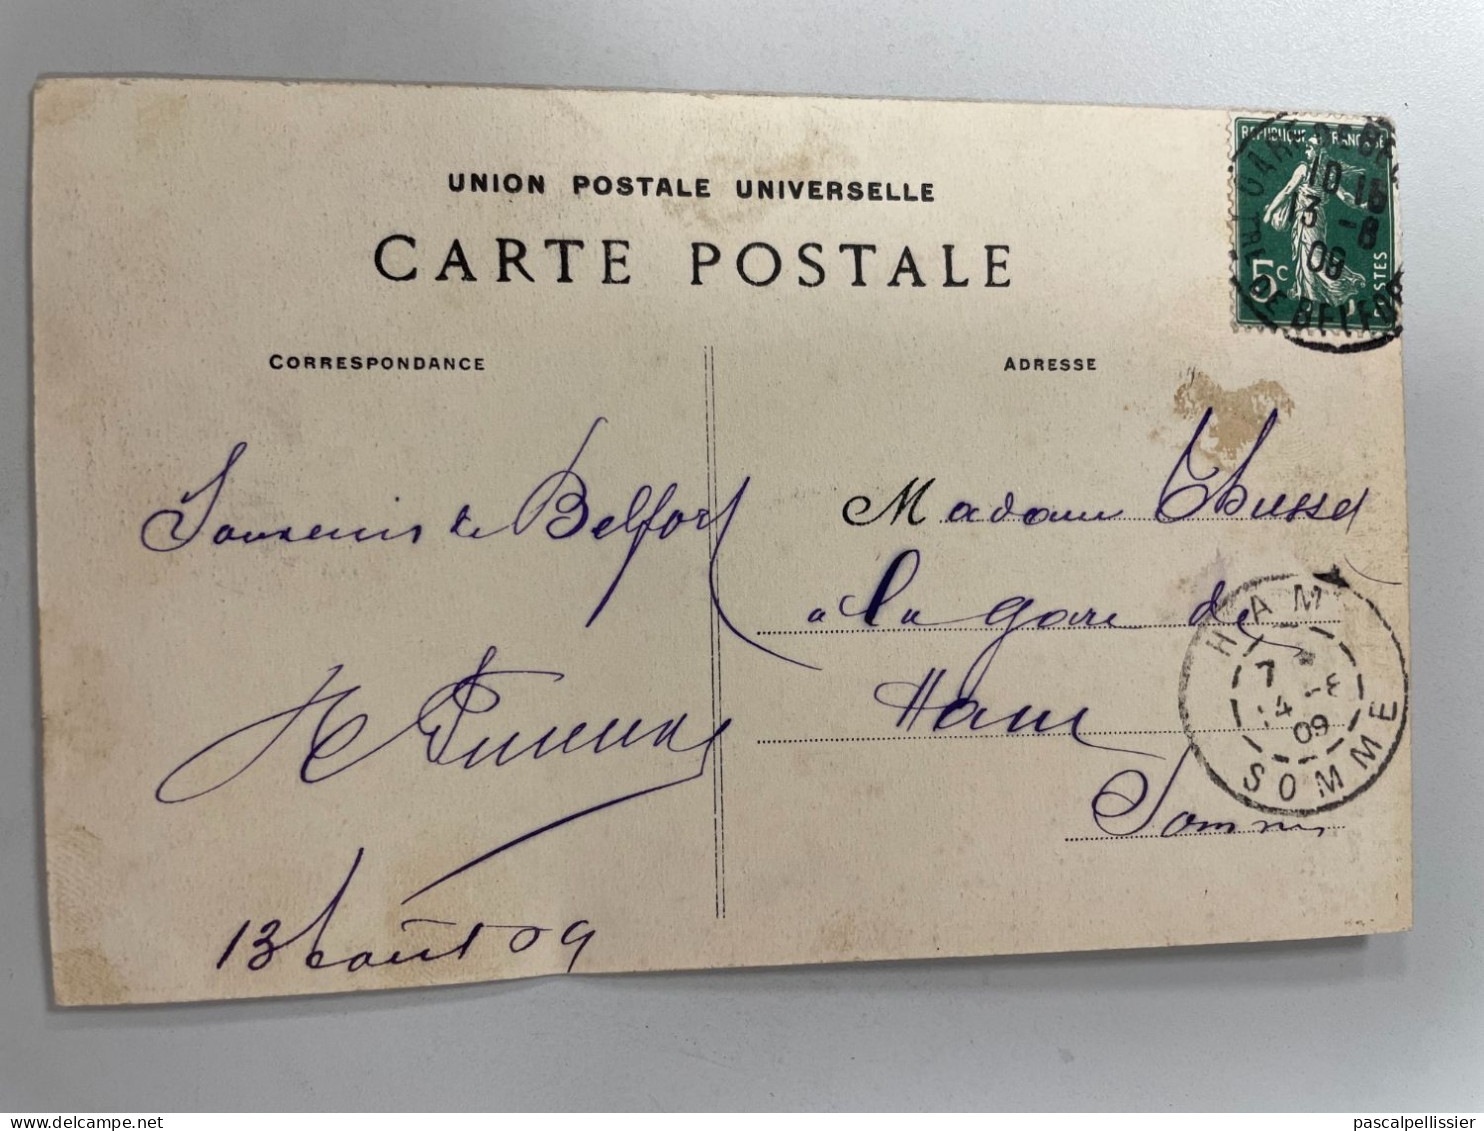 UNION POSTALE UNIVERSELLE
CARTE POSTALE
CORRESPONDANCE
ADRESSE
REPUBLIQUE FRANCAISE
5c
POSTES
10 15
13 -8
09
GARE DE BELFORT
Souvenir de Belfort
H
13 août 09
Madame
à la gare de
Ham
Somme
HAM
7
14 -8
09
SOMME
pascalpellissier